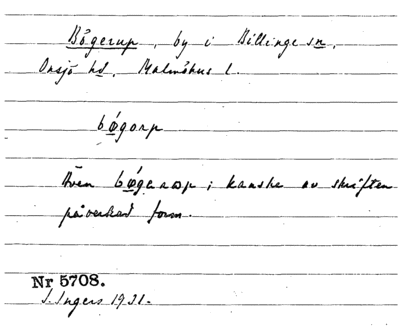 Bögerup, by i Billinge sn,
Onsjö hd, Malmöhus l.
bǿgarp
Även bǿgarap; kanske av skriften
påverkad form.
Nr 5708.
I. Ingers 1931.